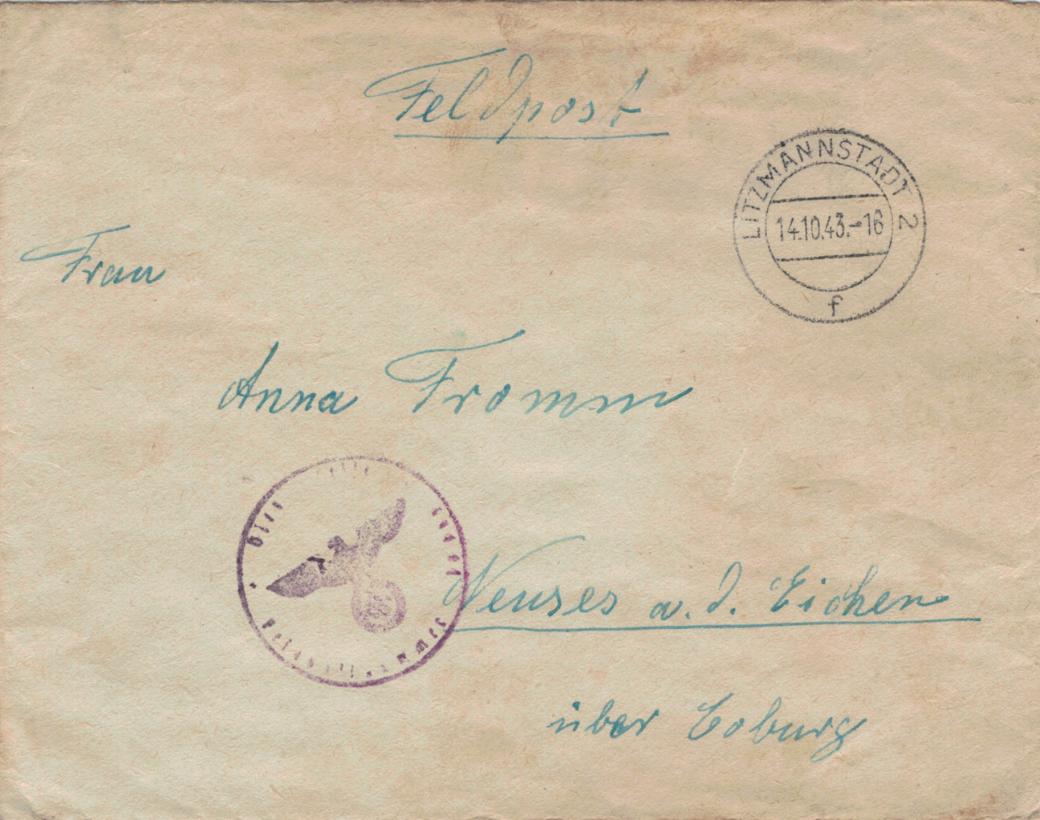 Feldpost
LITZMANNSTADT 2
14.10.43.-16
f
Frau
Anna Fromm
Neuses a. d. Eichen
über Coburg